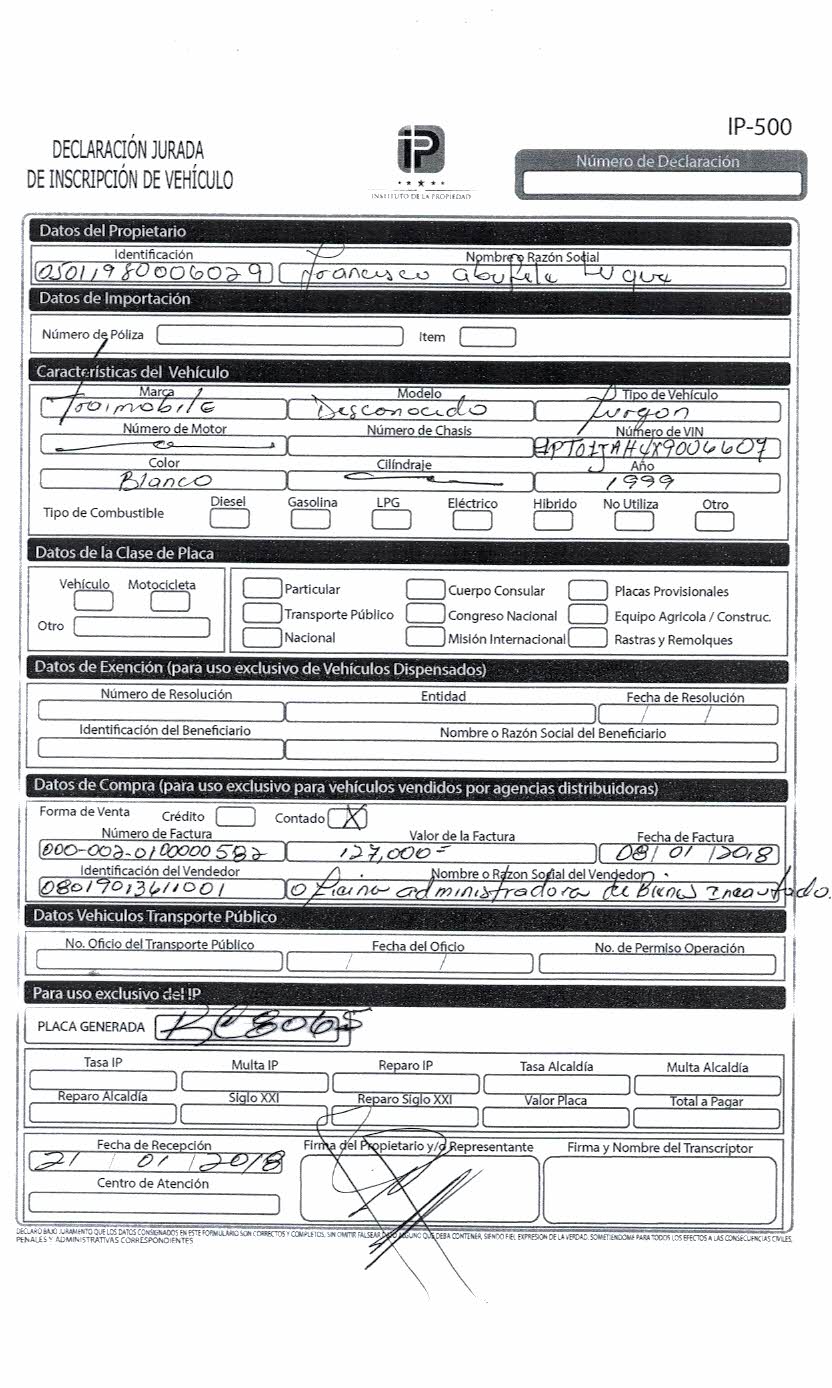 IP-500
DECLARACIÓN JURADA
DE INSCRIPCIÓN DE VEHÍCULO
iP
INSTITUTO DE LA PROPIEDAD
Número de Declaración
Datos del Propietario
Identificación Nombre o Razón Social
05011980006029 Francisco
Datos de Importación
Número de Póliza Item
Características del Vehículo
Marca Modelo Tipo de Vehículo
Desconocido Furgon
Número de Motor Número de Chasis Número de VIN
1PT01JAH4X9006607
Color Cilíndraje Año
Blanco 1999
Tipo de Combustible Diesel Gasolina LPG Eléctrico Hibrido No Utiliza Otro
Datos de la Clase de Placa
Vehículo Motocicleta
Otro
Particular Cuerpo Consular Placas Provisionales
Transporte Público Congreso Nacional Equipo Agricola / Construc.
Nacional Misión Internacional Rastras y Remolques
Datos de Exención (para uso exclusivo de Vehículos Dispensados)
Número de Resolución Entidad Fecha de Resolución
/ /
Identificación del Beneficiario Nombre o Razón Social del Beneficiario
Datos de Compra (para uso exclusivo para vehículos vendidos por agencias distribuidoras)
Forma de Venta Crédito Contado X
Número de Factura Valor de la Factura Fecha de Factura
000-002-0100000582 127,000= 08/01/2018
Identificación del Vendedor Nombre o Razon Social del Vendedor
08019013611001 Oficina administradora de Bienes Incautado.
Datos Vehiculos Transporte Público
No. Oficio del Transporte Público Fecha del Oficio No. de Permiso Operación
/ /
Para uso exclusivo del IP
PLACA GENERADA RC8065
Tasa IP Multa IP Reparo IP Tasa Alcaldía Multa Alcaldía
Reparo Alcaldía Siglo XXI Reparo Siglo XXI Valor Placa Total a Pagar
Fecha de Recepción Firma del Propietario y/o Representante Firma y Nombre del Transcriptor
21 / 01 / 2018
Centro de Atención
DECLARO BAJO JURAMENTO QUE LOS DATOS CONSIGNADOS EN ESTE FORMULARIO SON CORRECTOS Y COMPLETOS, SIN OMITIR FALSEAR DATO ALGUNO QUE DEBA CONTENER, SIENDO FIEL EXPRESION DE LA VERDAD, SOMETIENDOME PARA TODOS LOS EFECTOS A LAS CONSECUENCIAS CIVILES,
PENALES Y ADMINISTRATIVAS CORRESPONDIENTES